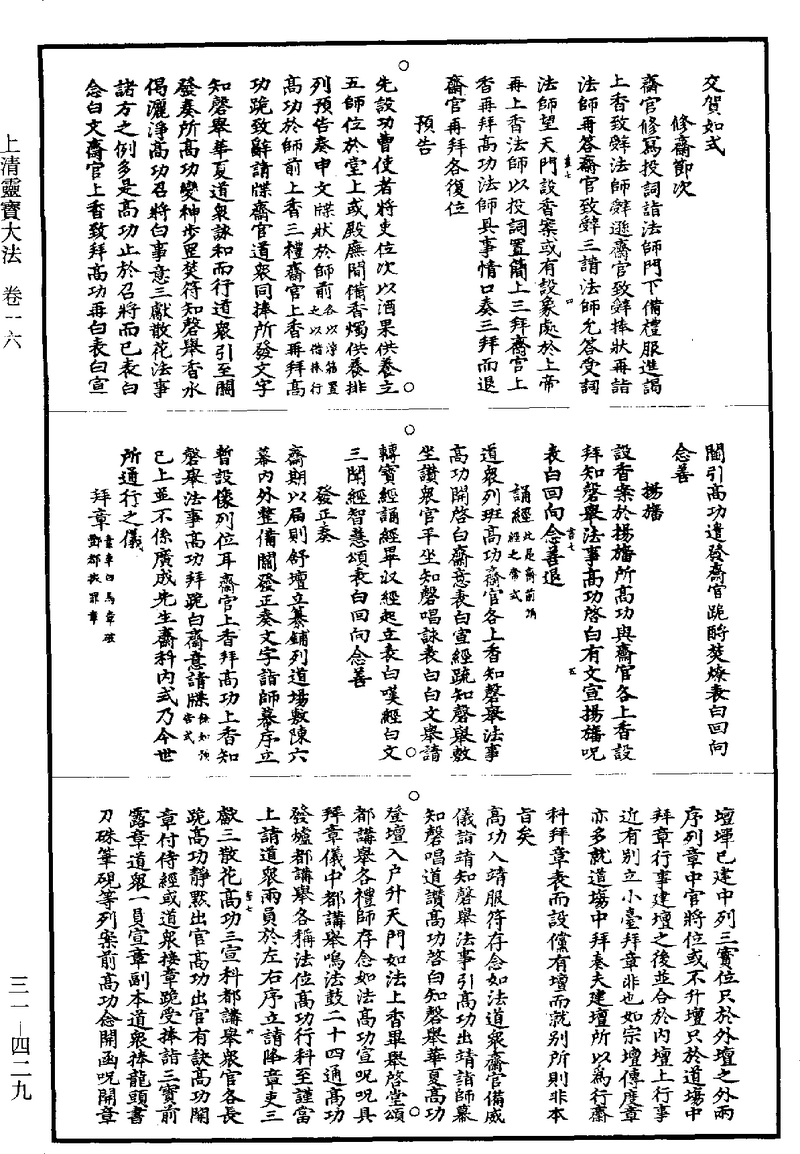 交賀如式
修齋節次
齋官修寫投詞詣法師門下備禮服進謁
上香致辤法師辤遜齋官致辤捧狀再詣
法師再答齋官致辤三請法師允答受詞
法師望天門設香案或有設象處於上帝
再上香法師以投詞置簡上三拜齋官上
香再拜高功法師具事情口奏三拜而退
齋官再拜各復位
預告
先設功曹使者將吏位次以酒果供養立
五師位於堂上或殿廡間備香燭供養排
列預告奏申文牒狀於師前
高功於師前上香三禮齋官上香再拜高
功跪致辭請牒齋官道衆同捧所發文字
知磬舉華夏道衆詠和而行道衆引至關
發奏所高功變神步罡焚符知磬舉香水
偈灑淨高功召將白事意三獻散花法事
諸方之例多是高功止於召將而已表白
念白文齋官上香致拜高功再白表白宣
關引高功遣發齋官跪酹焚燎表白回向
念善
揚旛
設香案於揚旛所高功與齋官各上香設
拜知磬舉法事高功啓白有文宣揚旛呪
表白回向念善退
誦經此是齋前預經之常式
道衆列班高功齋官各上香知磬舉法事
高功開啓白齋意表白宣經疏知磬舉敷
坐讚衆官平坐知磬唱詠表白白文舉請
轉寶經誦經畢収經起立表白嘆經白文
三聞經智慧頌表白回向念善
發正奏
齋期以届則舒壇立纂鋪列道場敷陳六
幕内外整備關發正奏文字詣師幕序立
暫設像列位耳齋官上香拜高功上香知
磬舉法事高功拜跪白齋意請牒餘如預告式
已上並不係廣成先生齋科内式乃今世
所通行之儀
拜章
壇墠已建中列三寳位只於外壇之外兩
序列章中官將位或不升壇只於道場中
拜章行事建壇之後並合於内壇上行事
近有别立小臺拜章非也如宗壇傳度章
亦多就道場中拜奏夫建壇所以爲行齋
科拜章表而設儻有壇而就别所則非本
旨矣
高功入靖服符存念如法道衆齋官備威
儀詣靖知磬舉法事引高功出靖詣師幕
知磬唱道讚高功啓白知磬舉華夏高功
登壇入户升天門如法上香畢舉啓堂頌
都講舉各禮師存念如法高功宣呪呪具
拜章儀中都講舉鳴法鼓二十四通高功
發爐都講舉各稱法位高功行科至謹當
上請道衆兩員於左右序立請降章吏三
獻三散花高功三宣科都講舉衆官各長
跪高功靜默出官高功出官有訣高功關
章付侍經或道衆接章跪受捧詣三寳前
露章道衆一員宣章副本道衆捧龍頭書
刀硃筆硯等列案前高功念開函呪開章
上清靈寶大法 卷一六
三一—四二九